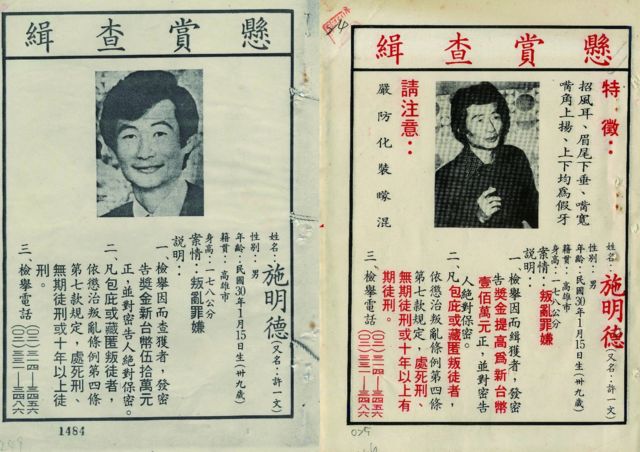 懸賞查緝
姓名：施明德（又名：許一文）
性別：男
年齡：民國30年1月15日生（卅九歲）
籍貫：高雄市
身高：一七八公分
案情：叛亂罪嫌
說明：
一、檢舉因而查獲者，發密
告獎金新台幣伍拾萬元
正，並對密告人絕對保密。
二、凡包庇或藏匿叛徒者，
依懲治叛亂條例第四條
第七款規定，處死刑、
無期徒刑或十年以上徒
刑。
三、檢舉電話
1484
懸賞查緝
特徵：
招風耳、眉尾下垂、嘴寬
嘴角上揚、上下均為假牙
請注意：
嚴防化裝矇混
姓名：施明德（又名：許一文）
性別：男
年齡：民國30年1月15日生（卅九歲）
籍貫：高雄市
身高：一七八公分
案情：叛亂罪嫌
說明：
一、檢舉因而緝獲者，發密
告獎金提高為新台幣
壹佰萬元正，並對密告
人絕對保密。
二、凡包庇或藏匿叛徒者，
依懲治叛亂條例第四條
第七款規定，處死刑、
無期徒刑或十年以上有
期徒刑。
三、檢舉電話